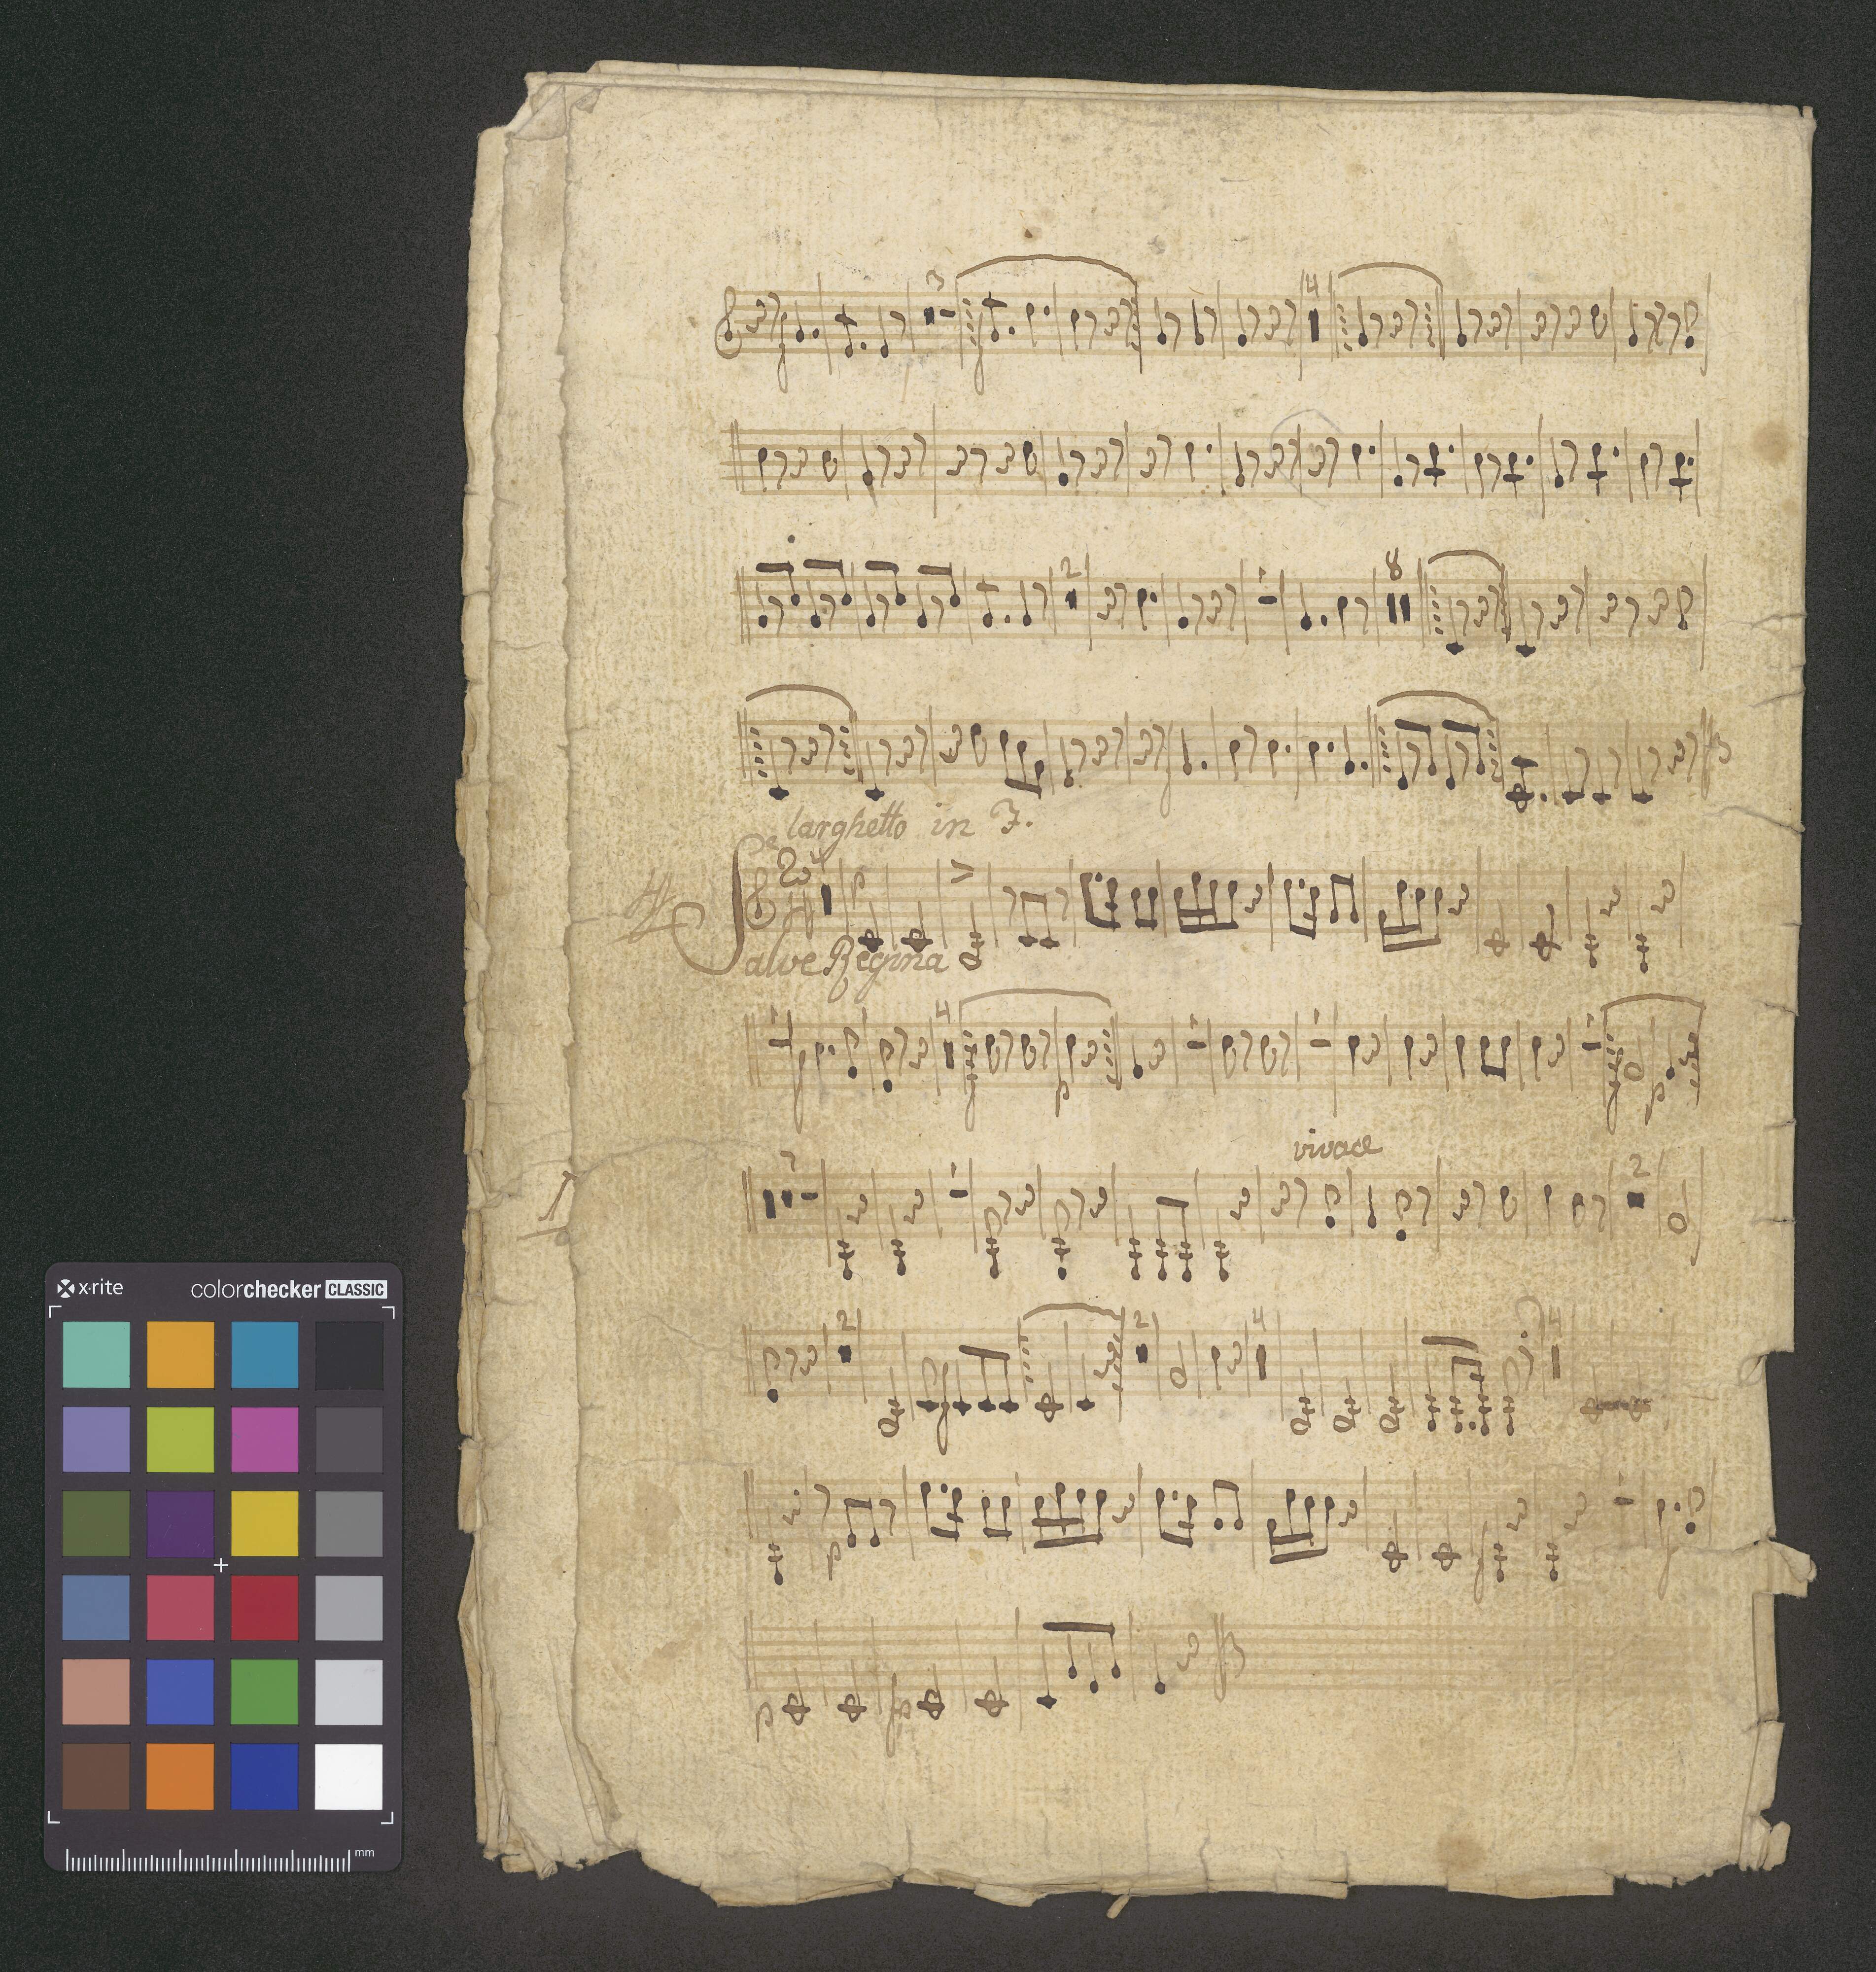 3
4
2
8
larghetto in F.
Salve Regina
4
vivace
2
2
2
4
4
x·rite
colorchecker CLASSIC
mm